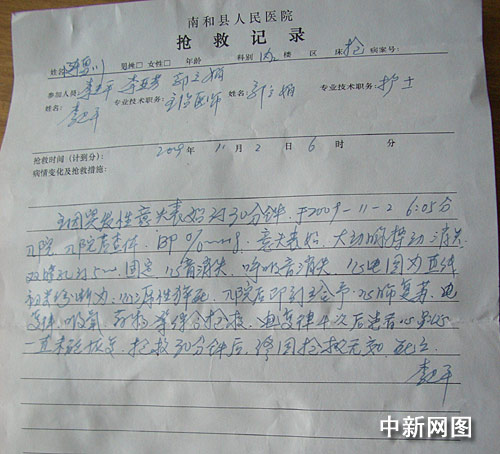 南和县人民医院
抢救记录
姓名 男性□ 女性□ 年龄 科别 内 楼 区 床 抢 病案号:
参加人员: 李 平 李 郭 娟
姓名: 李 平 专业技术职务: 主治医师 姓名: 郭 娟 专业技术职务: 护士
抢救时间(计到分): 2009 年 11 月 2 日 6 时 分
病情变化及抢救措施:
主因突发性意识丧失约30分钟,于2009-11-2 6:05分
入院.入院后查体:BP 0/0mmHg.意识丧失,大动脉搏动消失
双瞳孔约5mm.固定.心音消失.呼吸音消失.心电图为直线
初步诊断为:心源性猝死.入院后即刻给予心肺复苏.电
复律.吸氧. 等综合抢救.电复律 次后患者心
一直未能恢复.抢救30分钟后,终因抢救无效 死亡.
李 平
中新网图